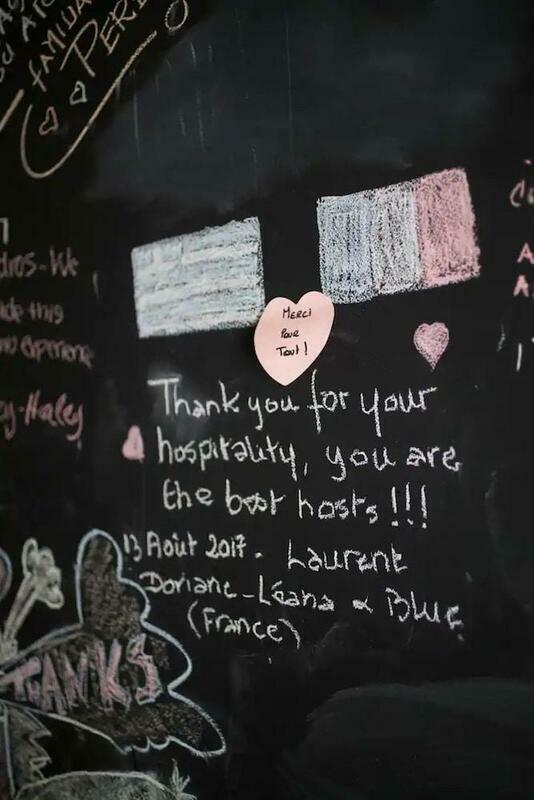 FAMILIA
PER
dros-We
ide this
experience
ey-Haley
MERCI
POUR
TOUT!
Thank you for your
hospitality, you are
the best hosts!!!
13 Août 2017 - Laurent
Doriane-Léana & Blue
(France)
THANKS